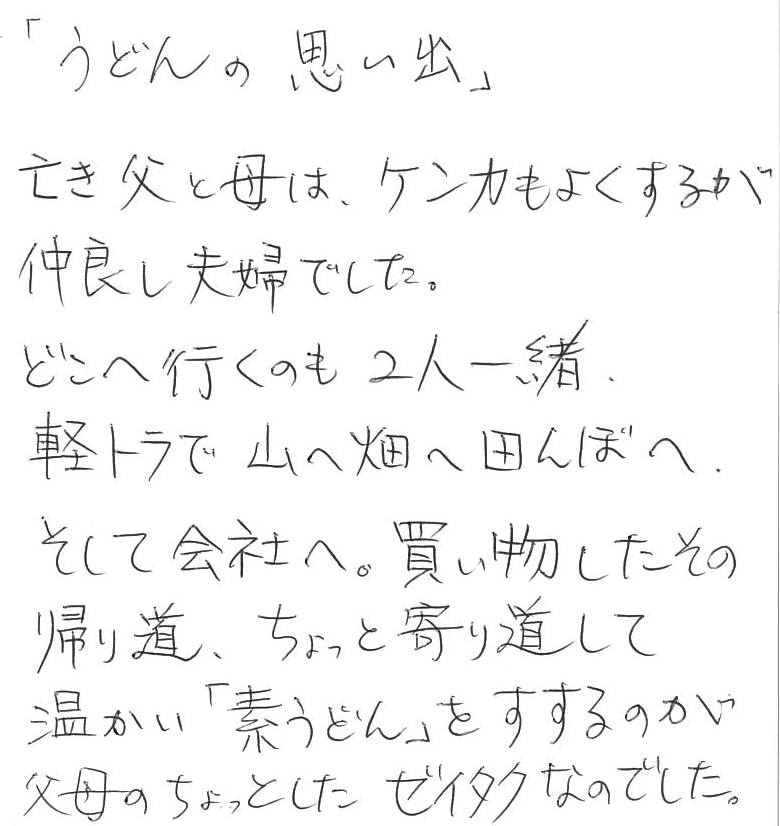 「うどんの思い出」
亡き父と母は、ケンカもよくするが
仲良し夫婦でした。
どこへ行くのも2人一緒、
軽トラで山へ畑へ田んぼへ、
そして会社へ。買い物したその
帰り道、ちょっと寄り道して
温かい「素うどん」をすするのが
父母のちょっとしたゼイタクなのでした。